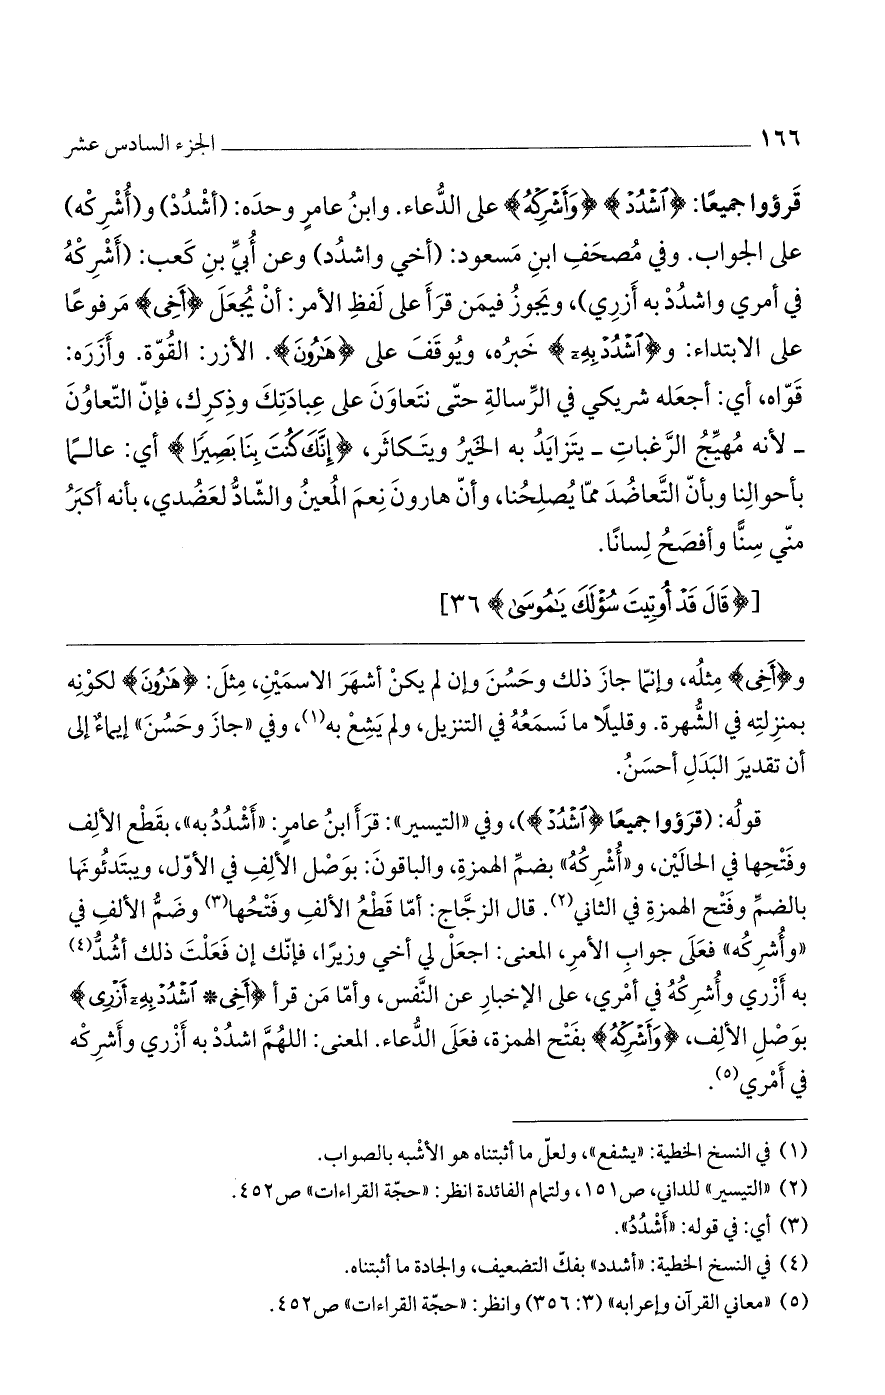 ١٦٦ الجزء السادس عشر
قَرؤوا جميعًا: ﴿ٱشْدُدْ﴾ ﴿وَأَشْرِكْهُ﴾ على الدُّعاء. وابنُ عامرٍ وحدَه: (أشْدُدْ) و(أُشْرِكْه)
على الجواب. وفي مُصحَفِ ابنِ مَسعود: (أخي واشدُد) وعن أُبيِّ بنِ كَعب: (أَشْرِكْهُ
في أمري واشدُدْ به أزرِي)، ويَجوزُ فيمَن قرَأَ على لَفظِ الأمر: أنْ يُجعَلَ ﴿أَخِى﴾ مَرفوعًا
على الابتداء: و﴿ٱشْدُدْ بِهِۦ﴾ خَبرُه، ويُوقَفَ على ﴿هَٰرُونَ﴾. الأزر: القُوّة. وأَزَرَه:
قَوّاه، أي: أجعَله شريكي في الرِّسالةِ حتّى نتَعاوَنَ على عِبادَتِكَ وذِكرِك، فإنّ التّعاوُنَ
ـ لأنه مُهيِّجُ الرَّغباتِ ـ يتزايَدُ به الخَيرُ ويتَكاثَر، ﴿إِنَّكَ كُنتَ بِنَا بَصِيرًا﴾ أي: عالـمًا
بأحوالِنا وبأنّ التَّعاضُدَ ممّا يُصلِحُنا، وأنّ هارونَ نِعمَ المُعينُ والشّادُّ لعَضُدي، بأنه أكبَرُ
منّي سِنًّا وأفصَحُ لِسانًا.
[﴿قَالَ قَدْ أُوتِيتَ سُؤْلَكَ يَٰمُوسَىٰ﴾ ٣٦]
و﴿أَخِى﴾ مِثلُه، وإنّما جازَ ذلك وحَسُنَ وإن لم يكنْ أشهَرَ الاسمَيْنِ، مِثلَ: ﴿هَٰرُونَ﴾ لكونِه
بمنزِلتِه في الشُّهرة. وقليلًا ما نَسمَعُهُ في التنزيل، ولم يَشِعْ به(١)، وفي «جازَ وحَسُنَ» إيماءٌ إلى
أن تقديرَ البَدَلِ أحسَنُ.
قولُه: (قرَؤوا جميعًا ﴿ٱشْدُدْ﴾)، وفي «التيسير»: قرَأَ ابنُ عامرٍ: «أَشْدُدْ به»، بقَطْعِ الألِف
وفَتْحِها في الحالَيْن، و«أُشْرِكُهُ» بضمِّ الهمزةِ، والباقونَ: بوَصْل الألِفِ في الأوّل، ويبتَدئُونَها
بالضمِّ وفَتْح الهمزةِ في الثاني(٢). قال الزجَّاج: أمّا قَطْعُ الألفِ وفَتْحُها(٣) وضَمُّ الألفِ في
«وأُشرِكُه» فعَلَى جوابِ الأمرِ، المعنى: اجعَلْ لي أخي وزيرًا، فإنّك إن فَعَلْتَ ذلك أشُدُّ(٤)
به أَزْري وأُشرِكُهُ في أمْري، على الإخبارِ عن النَّفس، وأمّا مَن قرأ ﴿أَخِى * ٱشْدُدْ بِهِۦٓ أَزْرِى﴾
بوَصْلِ الألِف، ﴿وَأَشْرِكْهُ﴾ بفَتْح الهمزة، فعَلَى الدُّعاء. المعنى: اللهُمَّ اشدُدْ به أَزْري وأَشرِكْه
في أَمْري(٥).
(١) في النسخ الخطية: «يشفع»، ولعلّ ما أثبتناه هو الأشْبه بالصواب.
(٢) «التيسير» للداني، ص١٥١، ولتمام الفائدة انظر: «حجّة القراءات» ص٤٥٢.
(٣) أي: في قوله: «أَشْدُدْ».
(٤) في النسخ الخطية: «أشدد» بفكّ التضعيف، والجادة ما أثبتناه.
(٥) «معاني القرآن وإعرابه» (٣: ٣٥٦) وانظر: «حجّة القراءات» ص٤٥٢.